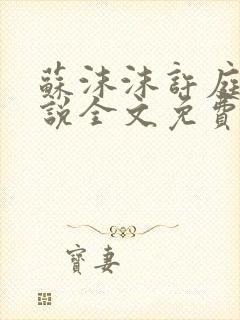 蘇沫沫許庭
說全文免費
寶妻